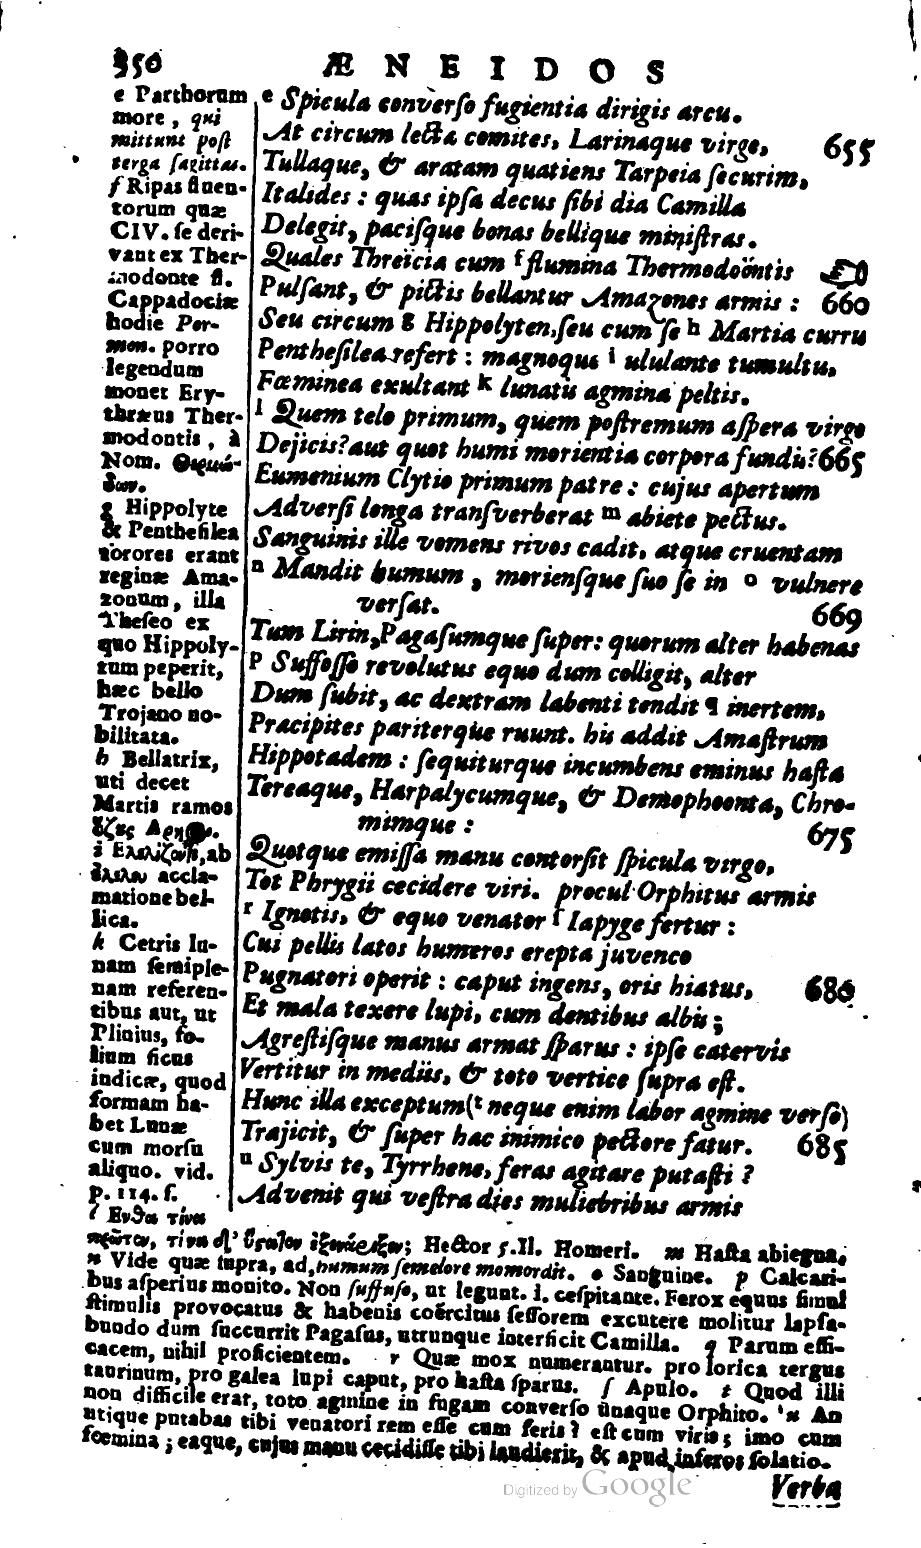 350
ÆNEIDOS
e Parthorum
more, qui
mittunt post
terga sagittas.
f Ripas fluen-
torum quæ
CIV. se deri-
vant ex Ther-
modonte fl.
Cappadociæ
hodie Por-
mon. porro
legendum
monet Ery-
thræus Ther-
modontis, à
Nom. Θερμώ-
δων.
g Hippolyte
& Penthesilea
sorores erant
reginæ Ama-
zonum, illa
Theseo ex
quo Hippoly-
tum peperit,
hæc bello
Trojano no-
bilitata.
h Bellatrix,
uti decet
Martis ramos
ὄζους
i Ελελίζουσι, ab
ἐλελευ accla-
matione bel-
lica.
k Cetris lu-
nam semiple-
nam referen-
tibus aut, ut
Plinius, fo-
lium ficus
indicæ, quod
formam ha-
bet Lunæ
cum morsu
aliquo. vid.
p. 114. f.
e Spicula converso fugientia dirigis arcu.
At circum lecta comites, Larinaque virgo, 655
Tullaque, & aratam quatiens Tarpeia securim,
Italides: quas ipsa decus sibi dia Camilla
Delegit, pacisque bonas bellique ministras.
Quales Threïcia cum f flumina Thermodoöntis
Pulsant, & pictis bellantur Amazones armis: 660
Seu circum g Hippolyten, seu cum se h Martia curru
Penthesilea refert: magnoque i ululante tumultu,
Fœminea exultant k lunatis agmina peltis.
l Quem telo primum, quem postremum aspera virgo
Dejicis? aut quot humi morientia corpora fundis? 665
Eumenium Clytio primum patre: cujus apertum
Adversi longa transverberat m abiete pectus.
Sanguinis ille vomens rivos cadit, atque cruentam
n Mandit humum, moriensque suo se in o vulnere
versat. 669
Tum Lirin, Pagasumque super: quorum alter habenas
p Suffosso revolutus equo dum colligit, alter
Dum subit, ac dextram labenti tendit q inertem,
Præcipites pariterque ruunt. his addit Amastrum
Hippotadem: sequiturque incumbens eminus hasta
Tereaque, Harpalycumque, & Demophoonta, Chro-
mimque: 675
Quotque emissa manu contorsit spicula virgo,
Tot Phrygii cecidere viri. procul Orphitus armis
r Ignotis, & equo venator s Iapyge fertur:
Cui pellis latos humeros erepta juvenco
Pugnatori operit: caput ingens, oris hiatus, 680
Et mala texere lupi, cum dentibus albis;
Agrestisque manus armat sparus: ipse catervis
Vertitur in mediis, & toto vertice supra est.
Hunc illa exceptum (t neque enim labor agmine verso)
Trajicit, & super hac inimico pectore fatur. 685
u Sylvis te, Tyrrhene, feras agitare putasti?
Advenit qui vestra dies muliebribus armis
l Ενθα τίνα
πρῶτον, τίνα δ' ὕςατον ἐξενάριξεν; Hector 5. Il. Homeri. m Hasta abiegna.
n Vide quæ supra, ad, humum semelore momordit. o Sanguine. p Calcari-
bus asperius monito. Non suffuso, ut legunt. i. cespitante. Ferox equus simul
stimulis provocatus & habenis coërcitus sessorem excutere molitur lapsa-
bundo dum succurrit Pagasus, utrunque interficit Camilla. q Parum effi-
cacem, nihil proficientem. r Quæ mox numerantur. pro lorica tergus
taurinum, pro galea lupi caput, pro hasta sparus. s Apulo. t Quod illi
non difficile erat, toto agmine in fugam converso unaque Orphito. u An
utique putabas tibi venatori rem esse cum feris? est cum viris; imo cum
fœmina; eaque, cujus manu cecidisse tibi laudierit, & apud inferos solatio.
Verba
Digitized by Google